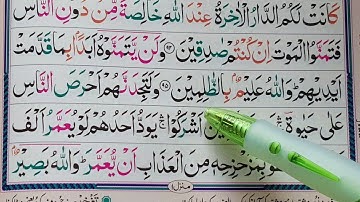 كَانَتْ لَكُمُ الدَّارُ الْاٰخِرَةُ عِنْدَ اللّٰهِ خَالِصَةً مِّنْ دُوْنِ النَّاسِ
فَتَمَنَّوُا الْمَوْتَ اِنْ كُنْتُمْ صٰدِقِيْنَ ۹۴ وَلَنْ يَّتَمَنَّوْهُ اَبَدًۢا بِمَا قَدَّمَتْ
اَيْدِيْهِمْ ؕ وَاللّٰهُ عَلِيْمٌۢ بِالظّٰلِمِيْنَ ۹۵ وَلَتَجِدَنَّهُمْ اَحْرَصَ النَّاسِ
عَلٰى حَيٰوةٍ ۛۚ اَشْرَكُوْا ۛۚ يَوَدُّ اَحَدُهُمْ لَوْ يُعَمَّرُ اَلْفَ
بِمُزَحْزِحِهٖ مِنَ الْعَذَابِ اَنْ يُّعَمَّرَ ؕ وَاللّٰهُ بَصِيْرٌۢ
منزل ۱